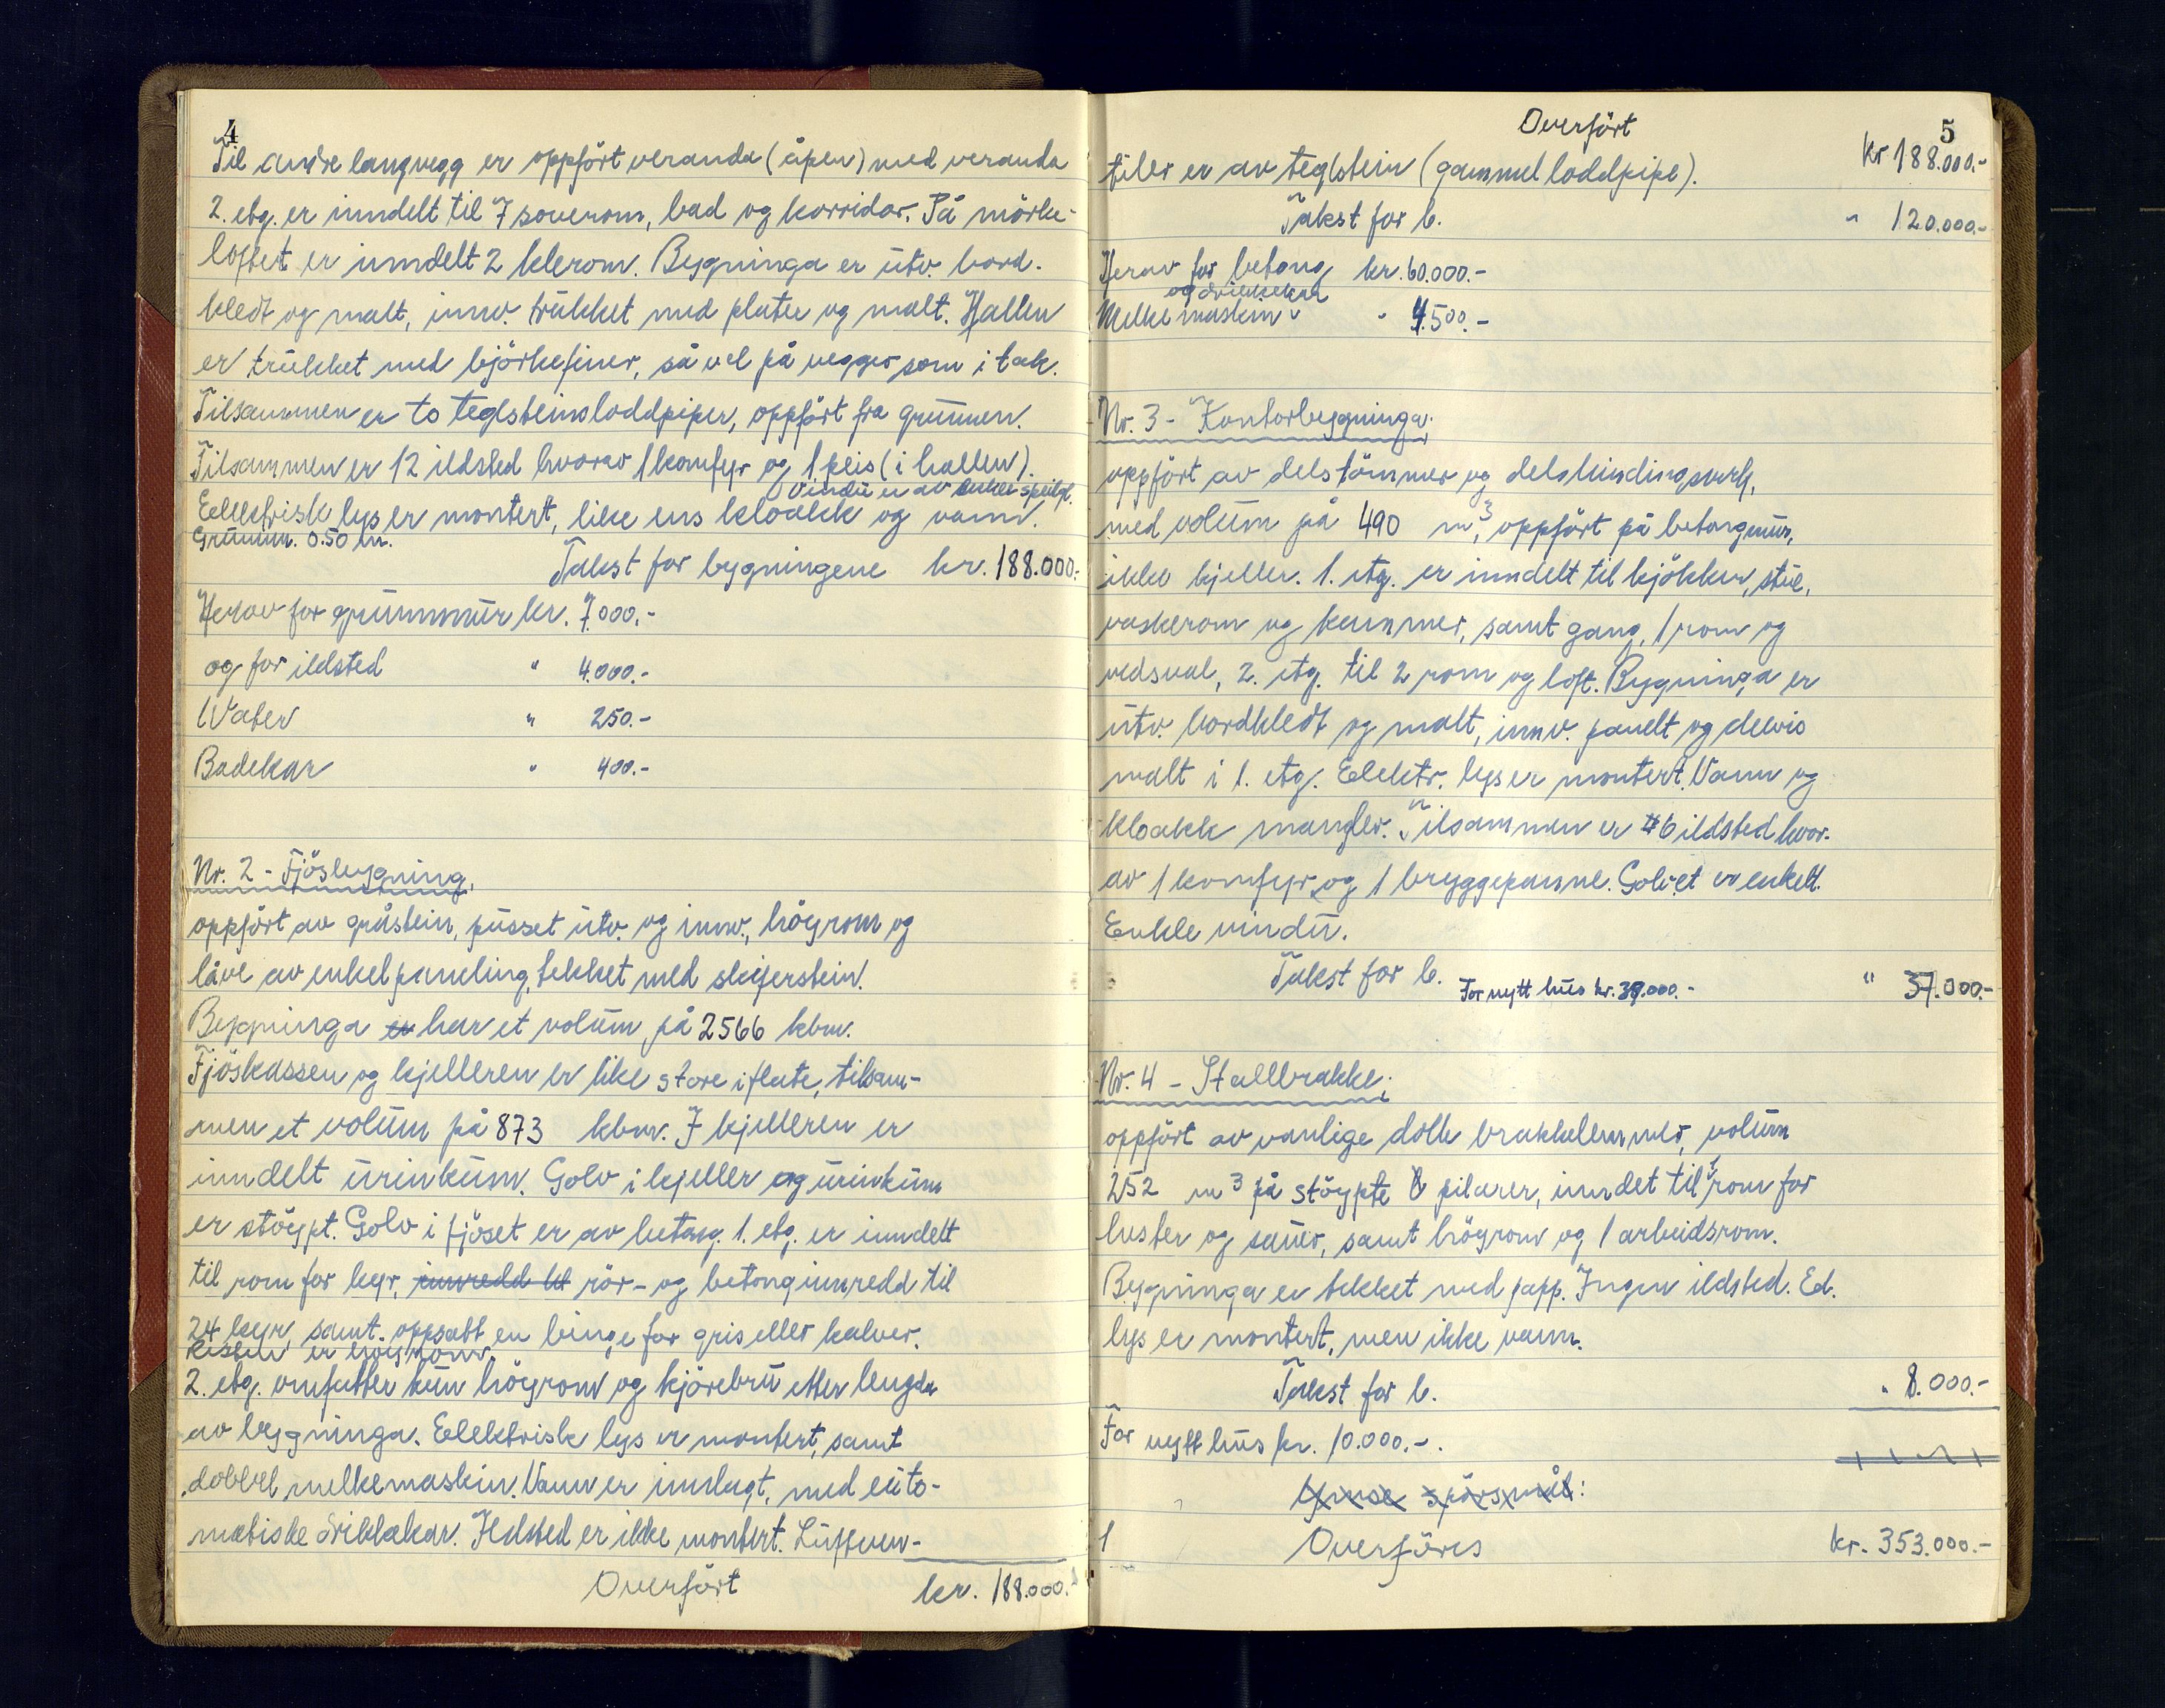 4
Til andre langvegg er oppfört veranda (åpen) med veranda
2. etg. er inndelt til 7 soverom, bad og korridor. På mörke-
loftet er inndelt 2 klerom. Bygninga er utv. bord-
kledt og malt, innv. trukket med plater og malt. Hallen
er trukket med björkefiner, så vel på vegger som i tak.
Tilsammen er to teglsteinsloddpiper, oppfört fra grunnen.
Tilsammen er 12 ildsted hvorav 1 komfyr og 1 peis (i hallen).
Vindu er av enkle speilgl.
Eelektrisk lys er montert, like ens kloakk og vann.
Grunnm. 0.50 m.
Takst for bygningene kr. 188.000.-
Herav for grunnmur kr. 7.000.-
og for ildsted " 4.000.-
Water " 250.-
Badekar " 400.-
Nr. 2 - Fjösbygning,
oppfört av gråstein, pusset utv. og innv., höyrom og
låve av enkel paneling, tekket med skiferstein.
Bygninga er har et volum på 2566 kbm.
Fjöskassen og kjelleren er like store i flate, tilsam-
men et volum på 873 kbm. I kjelleren er
inndelt urinkum. Golv i kjeller og urinkum
er stöypt. Golv i fjöset er av betong. 1. etg. er inndelt
til rom for kyr, innredd til rör- og betonginnredd til
24 kyr, samt. oppsatt en binge for gris eller kalver.
Resten er höyrom.
2. etg. omfatter kun höyrom og kjörebru etter lengda
av bygninga. Eelektrisk lys er montert, samt
dobbel melkemaskin. Vann er innlagt, med auto-
matiske drikkekar. Ildsted er ikke montert. Luftven-
Overfört kr. 188.000.-
5
Overfört
kr 188.000.-
tiler er av teglstein (gammel loddpipe).
Takst for b. " 120.000.-
Herav for betong kr. 60.000.-
og drikkekar
Melkemaskin " " 4.500.-
Nr. 3 - Kontorbygninga.
oppfört av dels tömmer og dels bindingsverk,
med volum på 490 m³, oppfört på betongmur,
ikke kjeller. 1. etg. er inndelt til kjökken, stue,
vaskerom og kammer, samt gang, 1 rom og
vedsval, 2. etg. til 2 rom og loft. Bygninga er
utv. bordkledt og malt, innv. panelt og delvis
malt i 1. etg. Eelektr. lys er montert. Vann og
kloakk mangler. Tilsammen er 6 ildsted hvor-
av 1 komfyr og 1 bryggepanne. Golvet er enkelt.
Enkle vindu.
Takst for b. For nytt hus kr. 39.000.- " 37.000.-
Nr. 4 - Stallbrakke.
oppfört av vanlige doble brakkelemmer, volum
252 m³ på stöypte pilarer, inndet til 1 rom for
hester og sauer, samt höyrom og 1 arbeidsrom.
Bygninga er tekket med papp. Ingen ildsted. Eel.
lys er montert, men ikke vann.
Takst for b. " 8.000.-
For nytt hus kr. 10.000.-.
Ymse spörsmål:
1 Overföres kr. 353.000.-